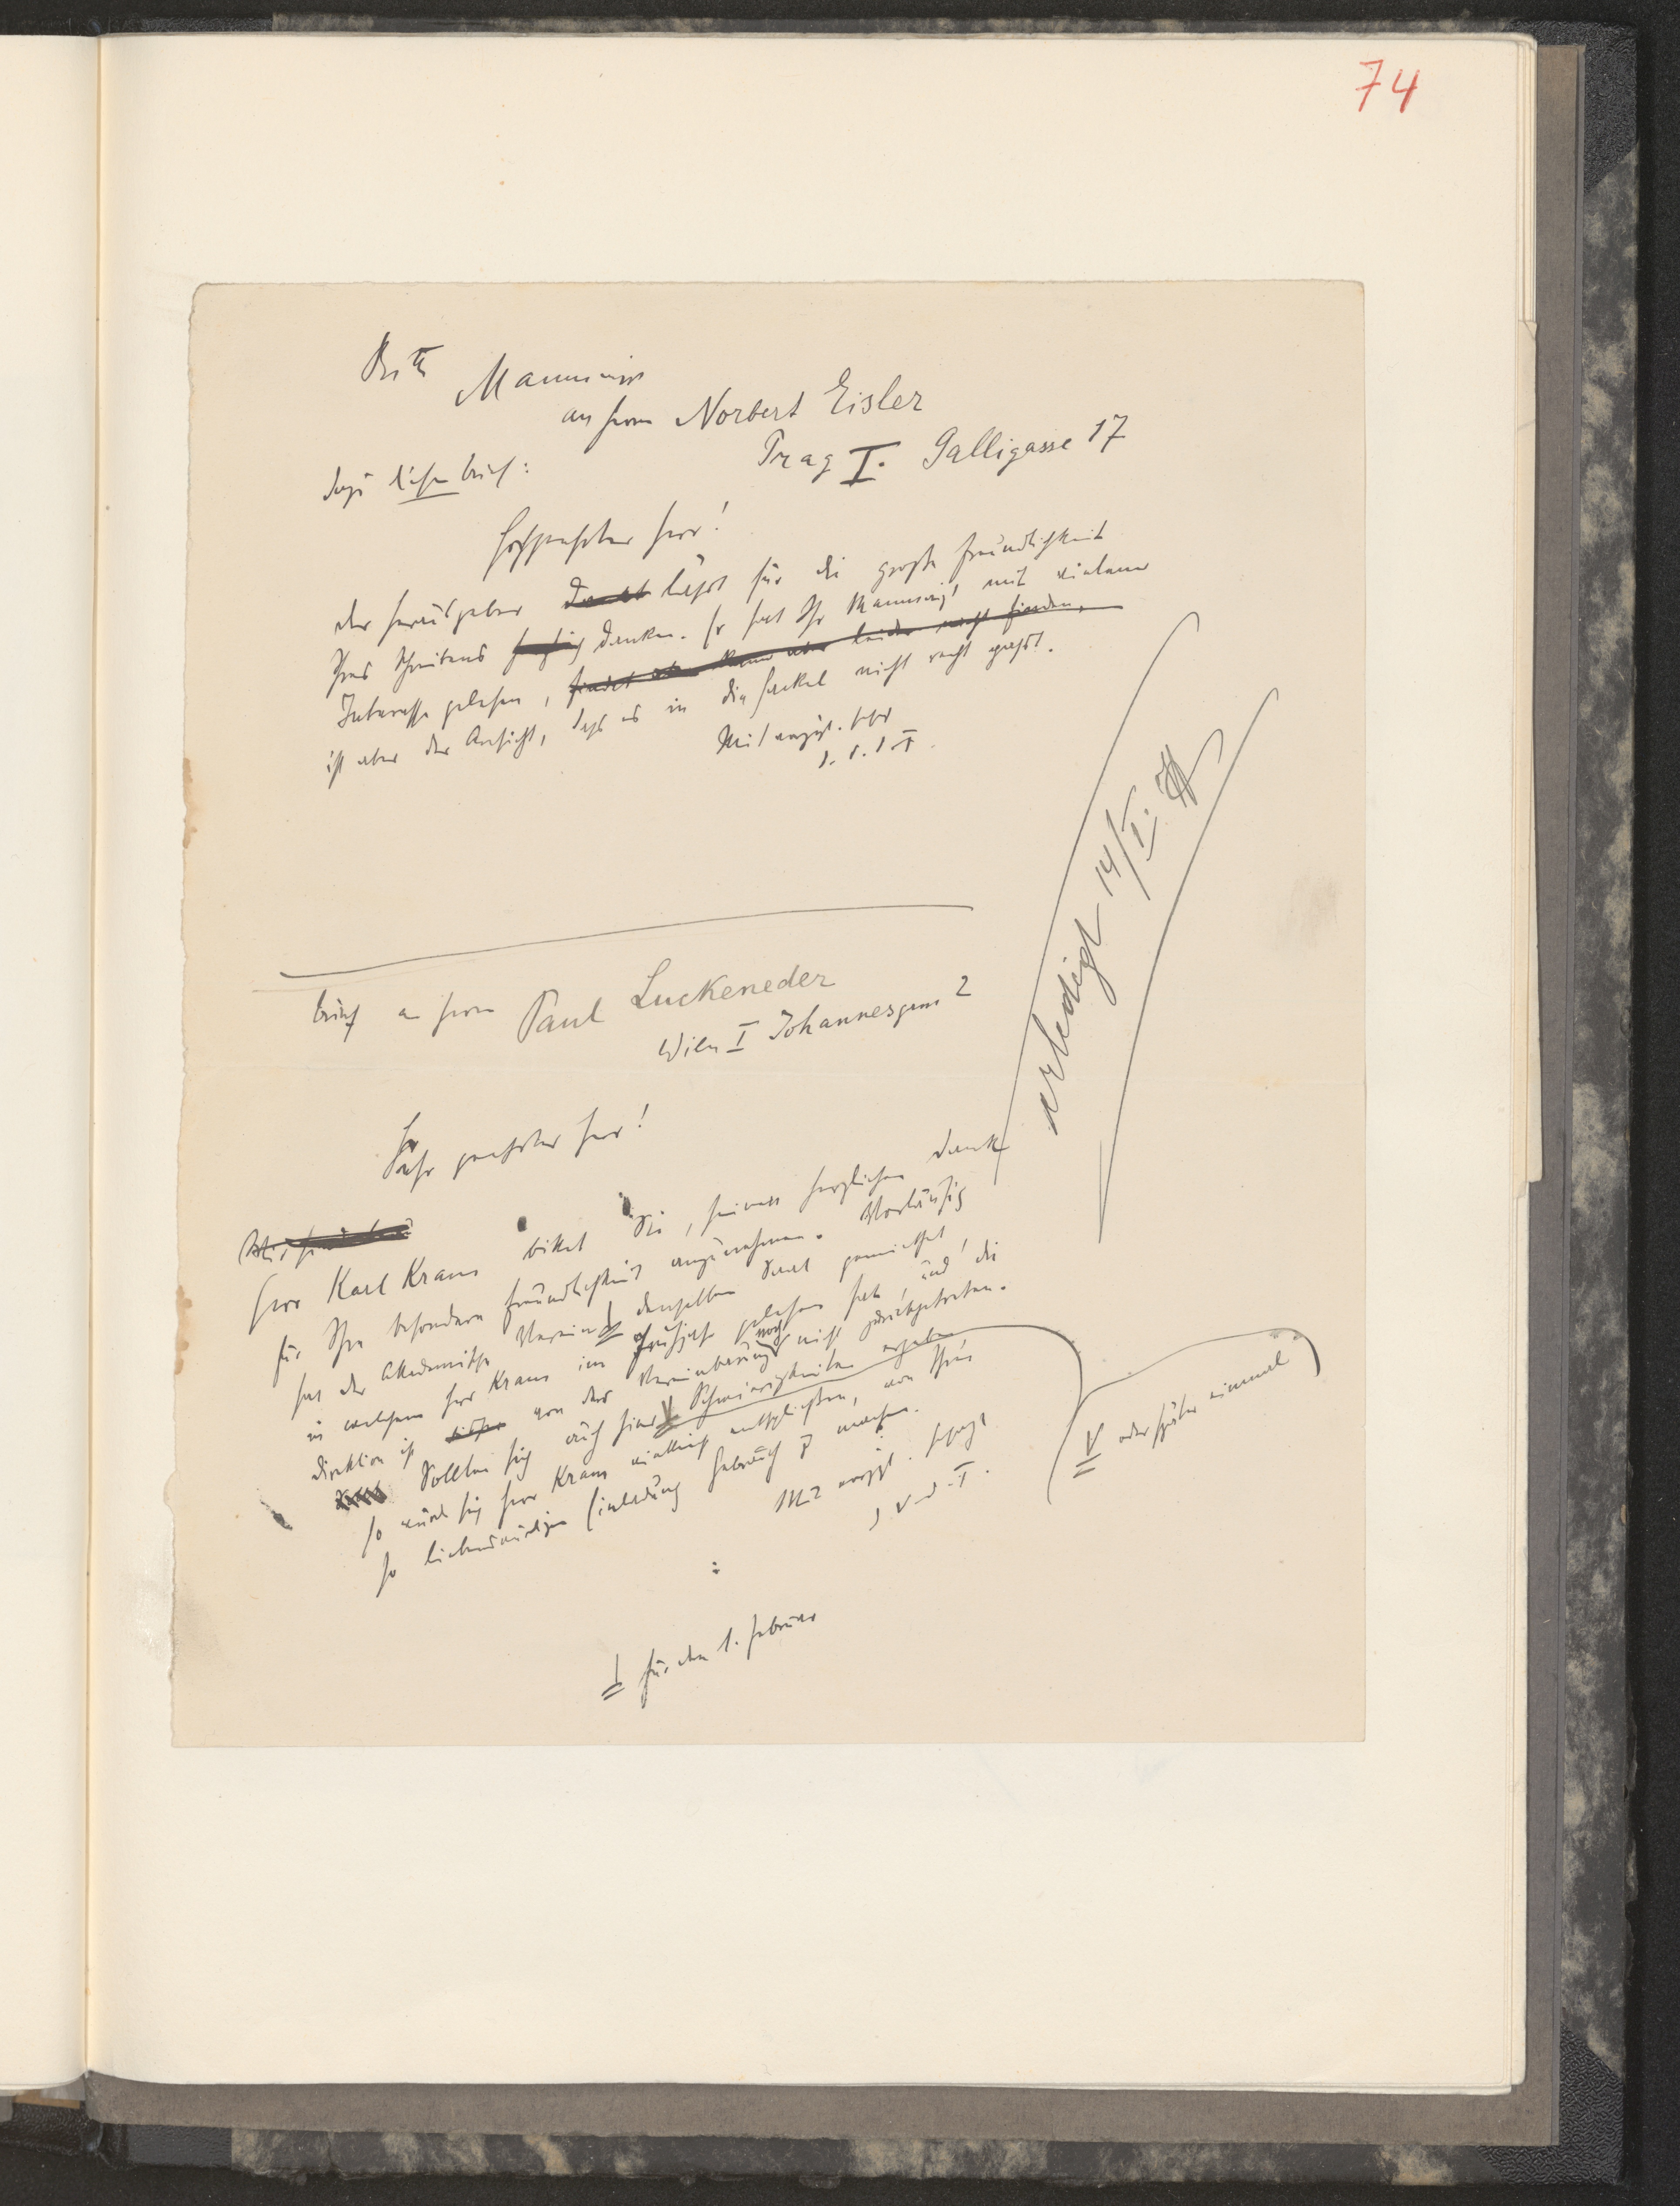 74
Bitte Manuscript
an Herrn Norbert Eisler
Prag I. Galligasse 17
dazu diesen Brief:
Hochgeehrter Herr!
Der Herausgeber dankt lässt für die große Freundlichkeit
Ihres Schreibens danken. Er hat Ihr Manuscript mit vielem
Interesse gelesen, findet kann aber leider nicht finden,
ist aber der Ansicht, dass es in die Fackel nicht recht passt.
Mit vorzügl.
Brief an Herrn Paul Luckeneder
Wien I Johannesgasse 2
erledigt 14/I.
Sehr geehrter Herr!
Herr Karl Kraus bittet Sie, seinen herzlichen Dank
für Ihre besondere Freundlichkeit anzunehmen. Vorläufig
hat der Akademische Verein denselben Saal gemietet,
in welchem Herr Kraus im Frühjahr gelesen hat, und die
Direktion ist von der Vereinbarung noch nicht zurückgetreten.
Sollten sich auch hier V Schwierigkeiten ergeben
so würde sich Herr Kraus vielleicht entschließen, von Ihrer
so liebenswürdigen Einladung Gebrauch zu machen.
V oder später einmal
für den 1. Februar